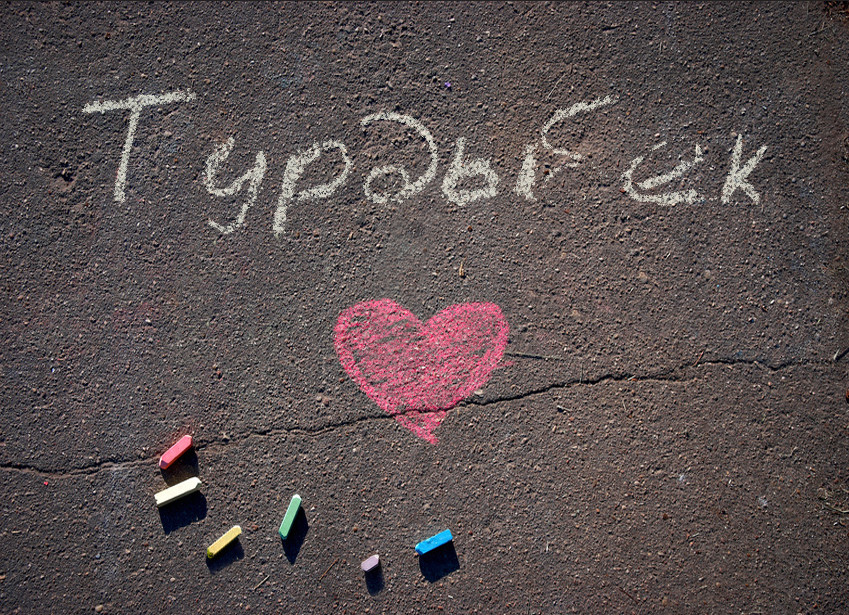 Турдыбек